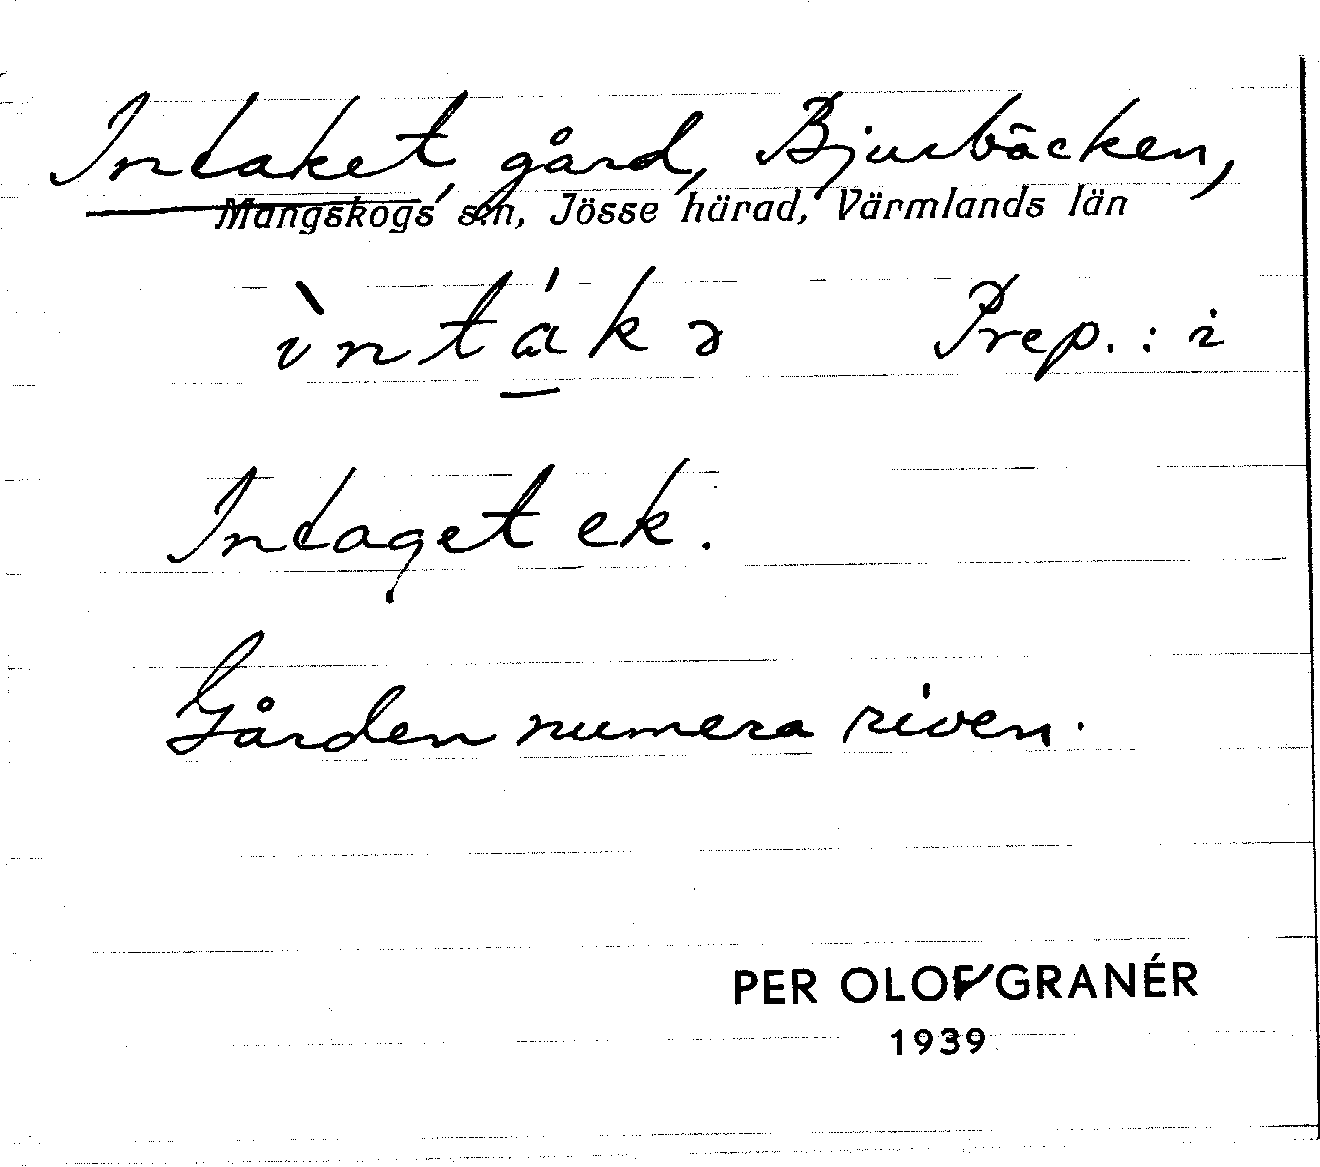 Intaket, gård, Bjurbäcken,
Mangskogs sn, Jösse härad, Värmlands län
ìntákə Prep. : i
Intaget ek.
Gården numera riven.
PER OLOF GRANÉR
1939